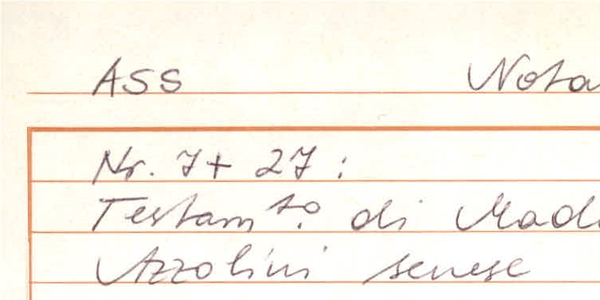 ASS Nota
Nr. 7 + 27 :
Testamto. di Mado
Azzolini senese